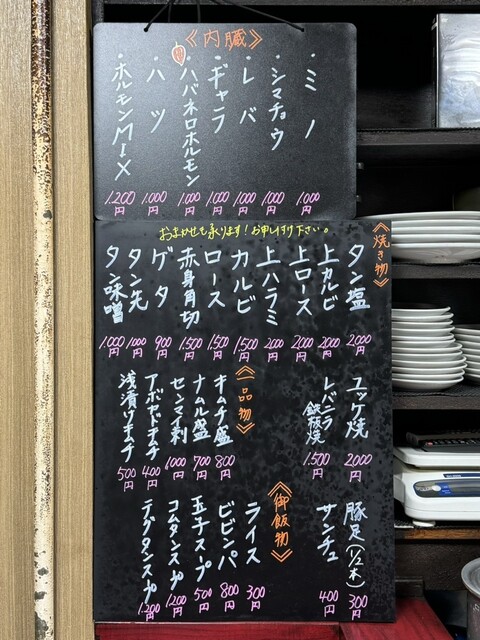 《内臓》
・ミノ 1000円
・シマチョウ 1000円
・レバ 1000円
・ギャラ 1000円
・ハバネロホルモン 1000円
・ハツ 1000円
・ホルモンMIX 1200円
おまかせも承ります!お申し付け下さい。
《焼き物》
タン塩 2000円
上カルビ 2000円
上ロース 2000円
上ハラミ 2000円
カルビ 1500円
ロース 1500円
赤身角切 1500円
ゲタ 900円
タン先 1000円
タン味噌 1000円
ユッケ焼 2000円
レバニラ鉄板焼 1500円
豚足(1/2本) 300円
サンチュ 400円
《一品物》
キムチ盛 800円
ナムル盛 700円
センマイ刺 1000円
アボカドキムチ 400円
浅漬けキムチ 500円
《御飯物》
ライス 300円
ビビンバ 800円
玉子スープ 500円
コムタンスープ 1200円
テグタンスープ 1200円